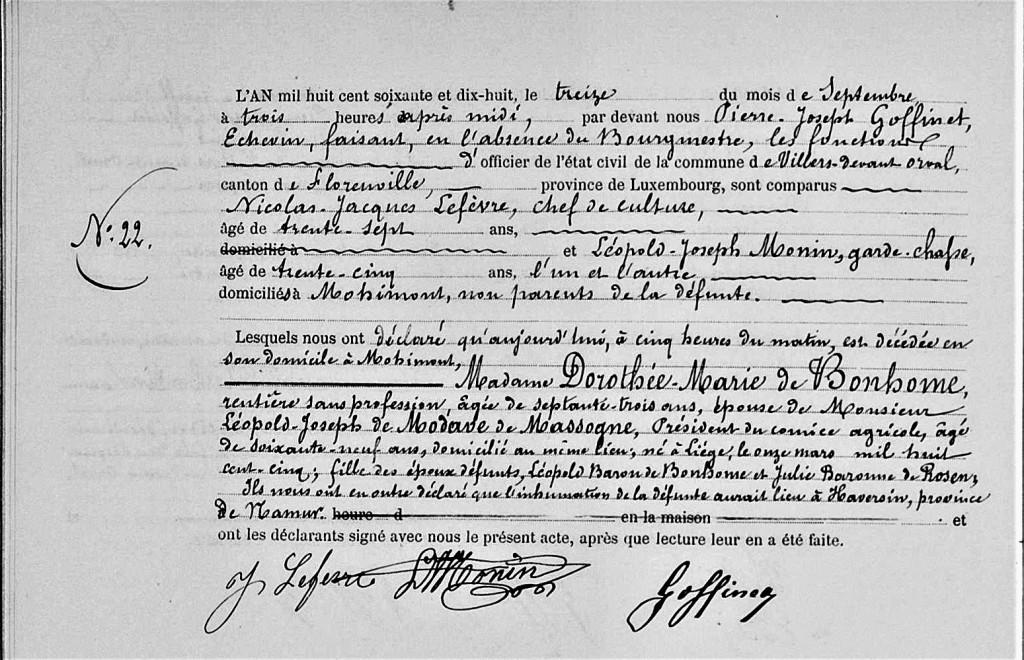 L'AN mil huit cent soixante et dix-huit, le treize du mois de Septembre
à trois heures après midi, par devant nous Pierre-Joseph Goffinet,
Echevin, faisant, en l'absence du Bourgmestre, les fonctions
d'officier de l'état civil de la commune de Villers-devant orval,
canton de Florenville, province de Luxembourg, sont comparus
N° 22.
Nicolas-Jacques Lefèvre, chef de culture,
âgé de trente-sept ans,
domicilié à et Léopold-Joseph Monin, garde-chasse,
âgé de trente-cinq ans, l'un et l'autre
domiciliés à Mohimont, non parents de la défunte.
Lesquels nous ont déclaré qu'aujourd'hui, à cinq heures du matin, est décédée en
son domicile à Mohimont,
Madame Dorothée-Marie de Bonhome,
rentière sans profession, âgée de septante-trois ans, épouse de Monsieur
Léopold-Joseph de Modave de Massogne, Président du comice agricole, âgé
de soixante-neuf ans, domicilié au même lieu; né à Liége, le onze mars mil huit
cent-cinq; fille des époux défunts, Léopold Baron de Bonhome et Julie Baronne de Rosen;
Ils nous ont en outre déclaré que l'inhumation de la défunte aurait lieu à Haversin, province
de Namur. heure d en la maison et
ont les déclarants signé avec nous le présent acte, après que lecture leur en a été faite.
J Lefevre Monin Goffinet